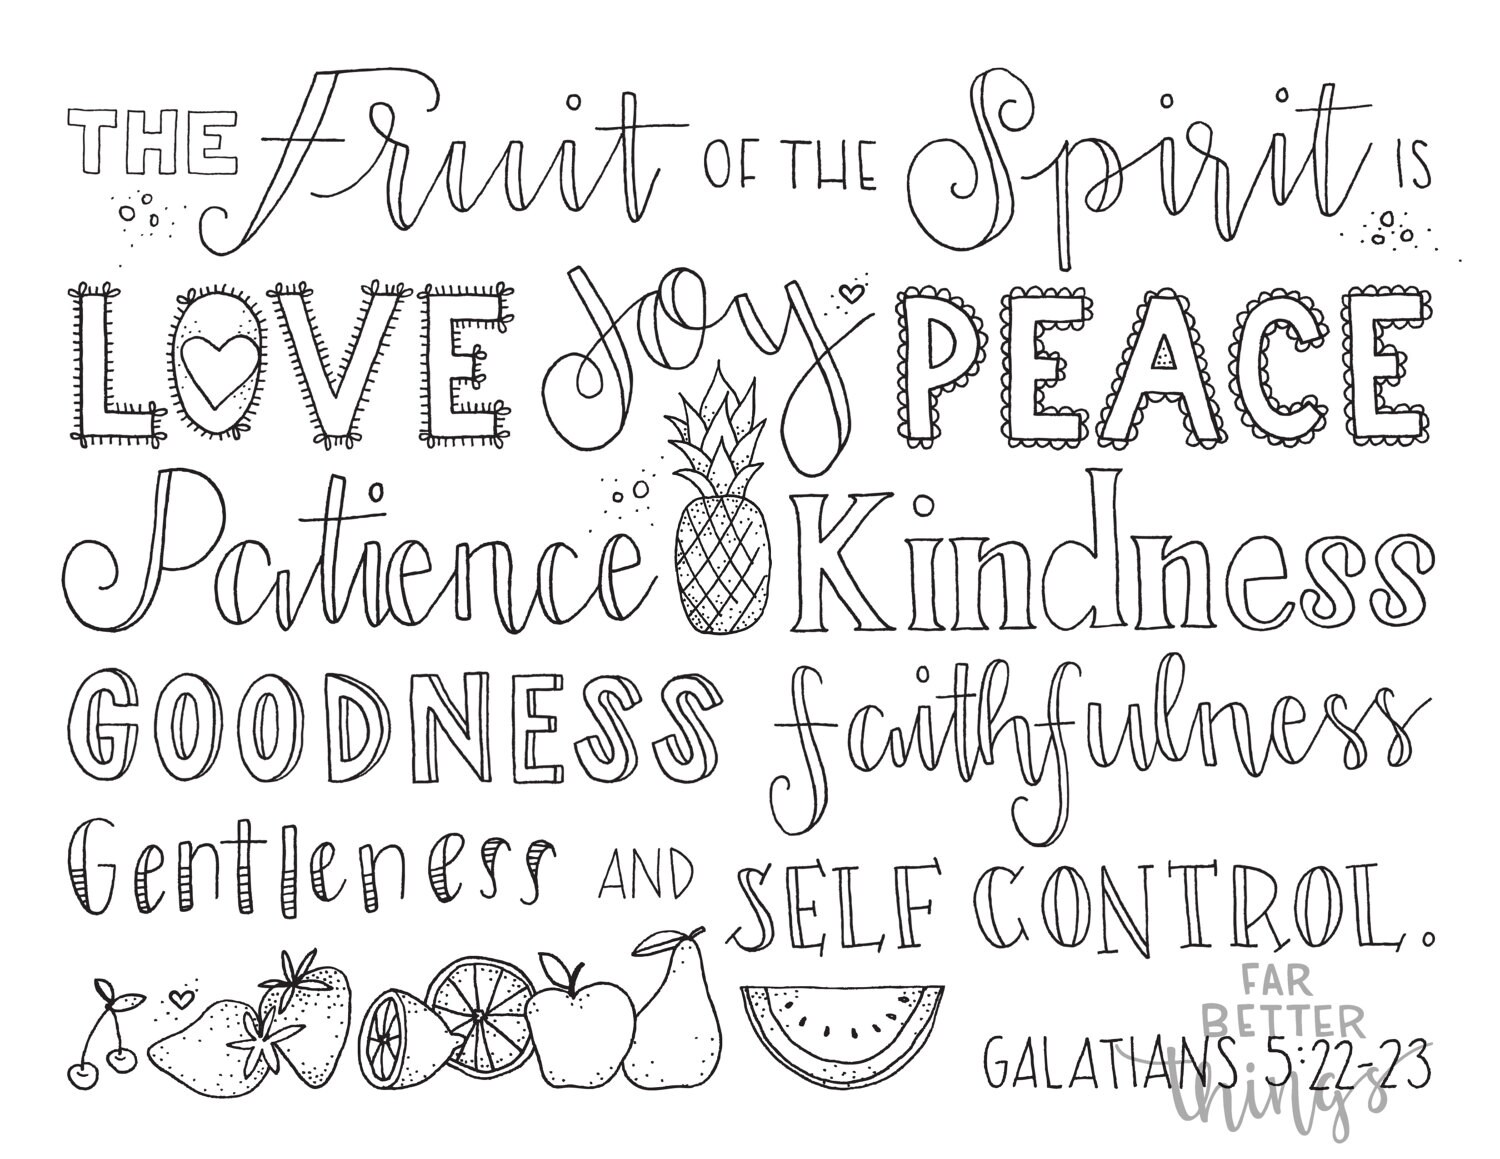 THE Fruit OF THE Spirit IS
LOVE Joy PEACE
Patience Kindness
GOODNESS faithfulness
Gentleness AND SELF CONTROL.
FAR
BETTER
things
GALATIANS 5:22-23